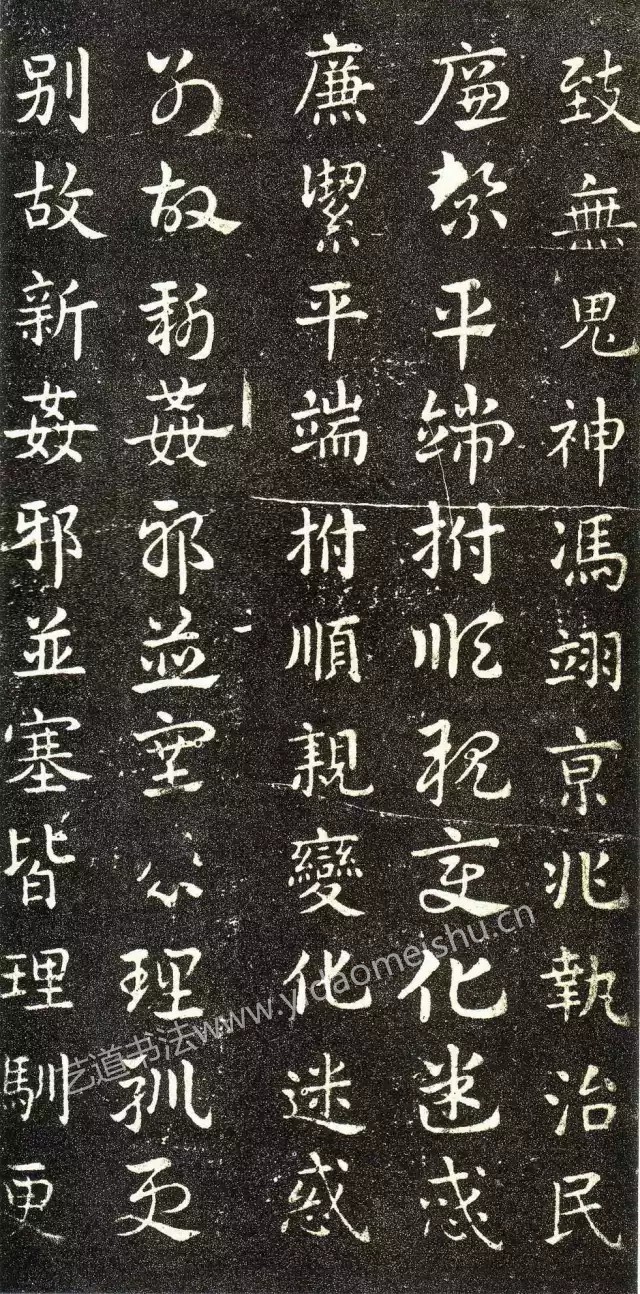 致無鬼神馮翊京兆執治民
廉絜平端拊順親變化迷惑
廉絜平端拊順親變化迷惑
別故新姦邪並塞皆理馴更
別故新姦邪並塞皆理馴更
艺道书法www.yidaomeishu.cn